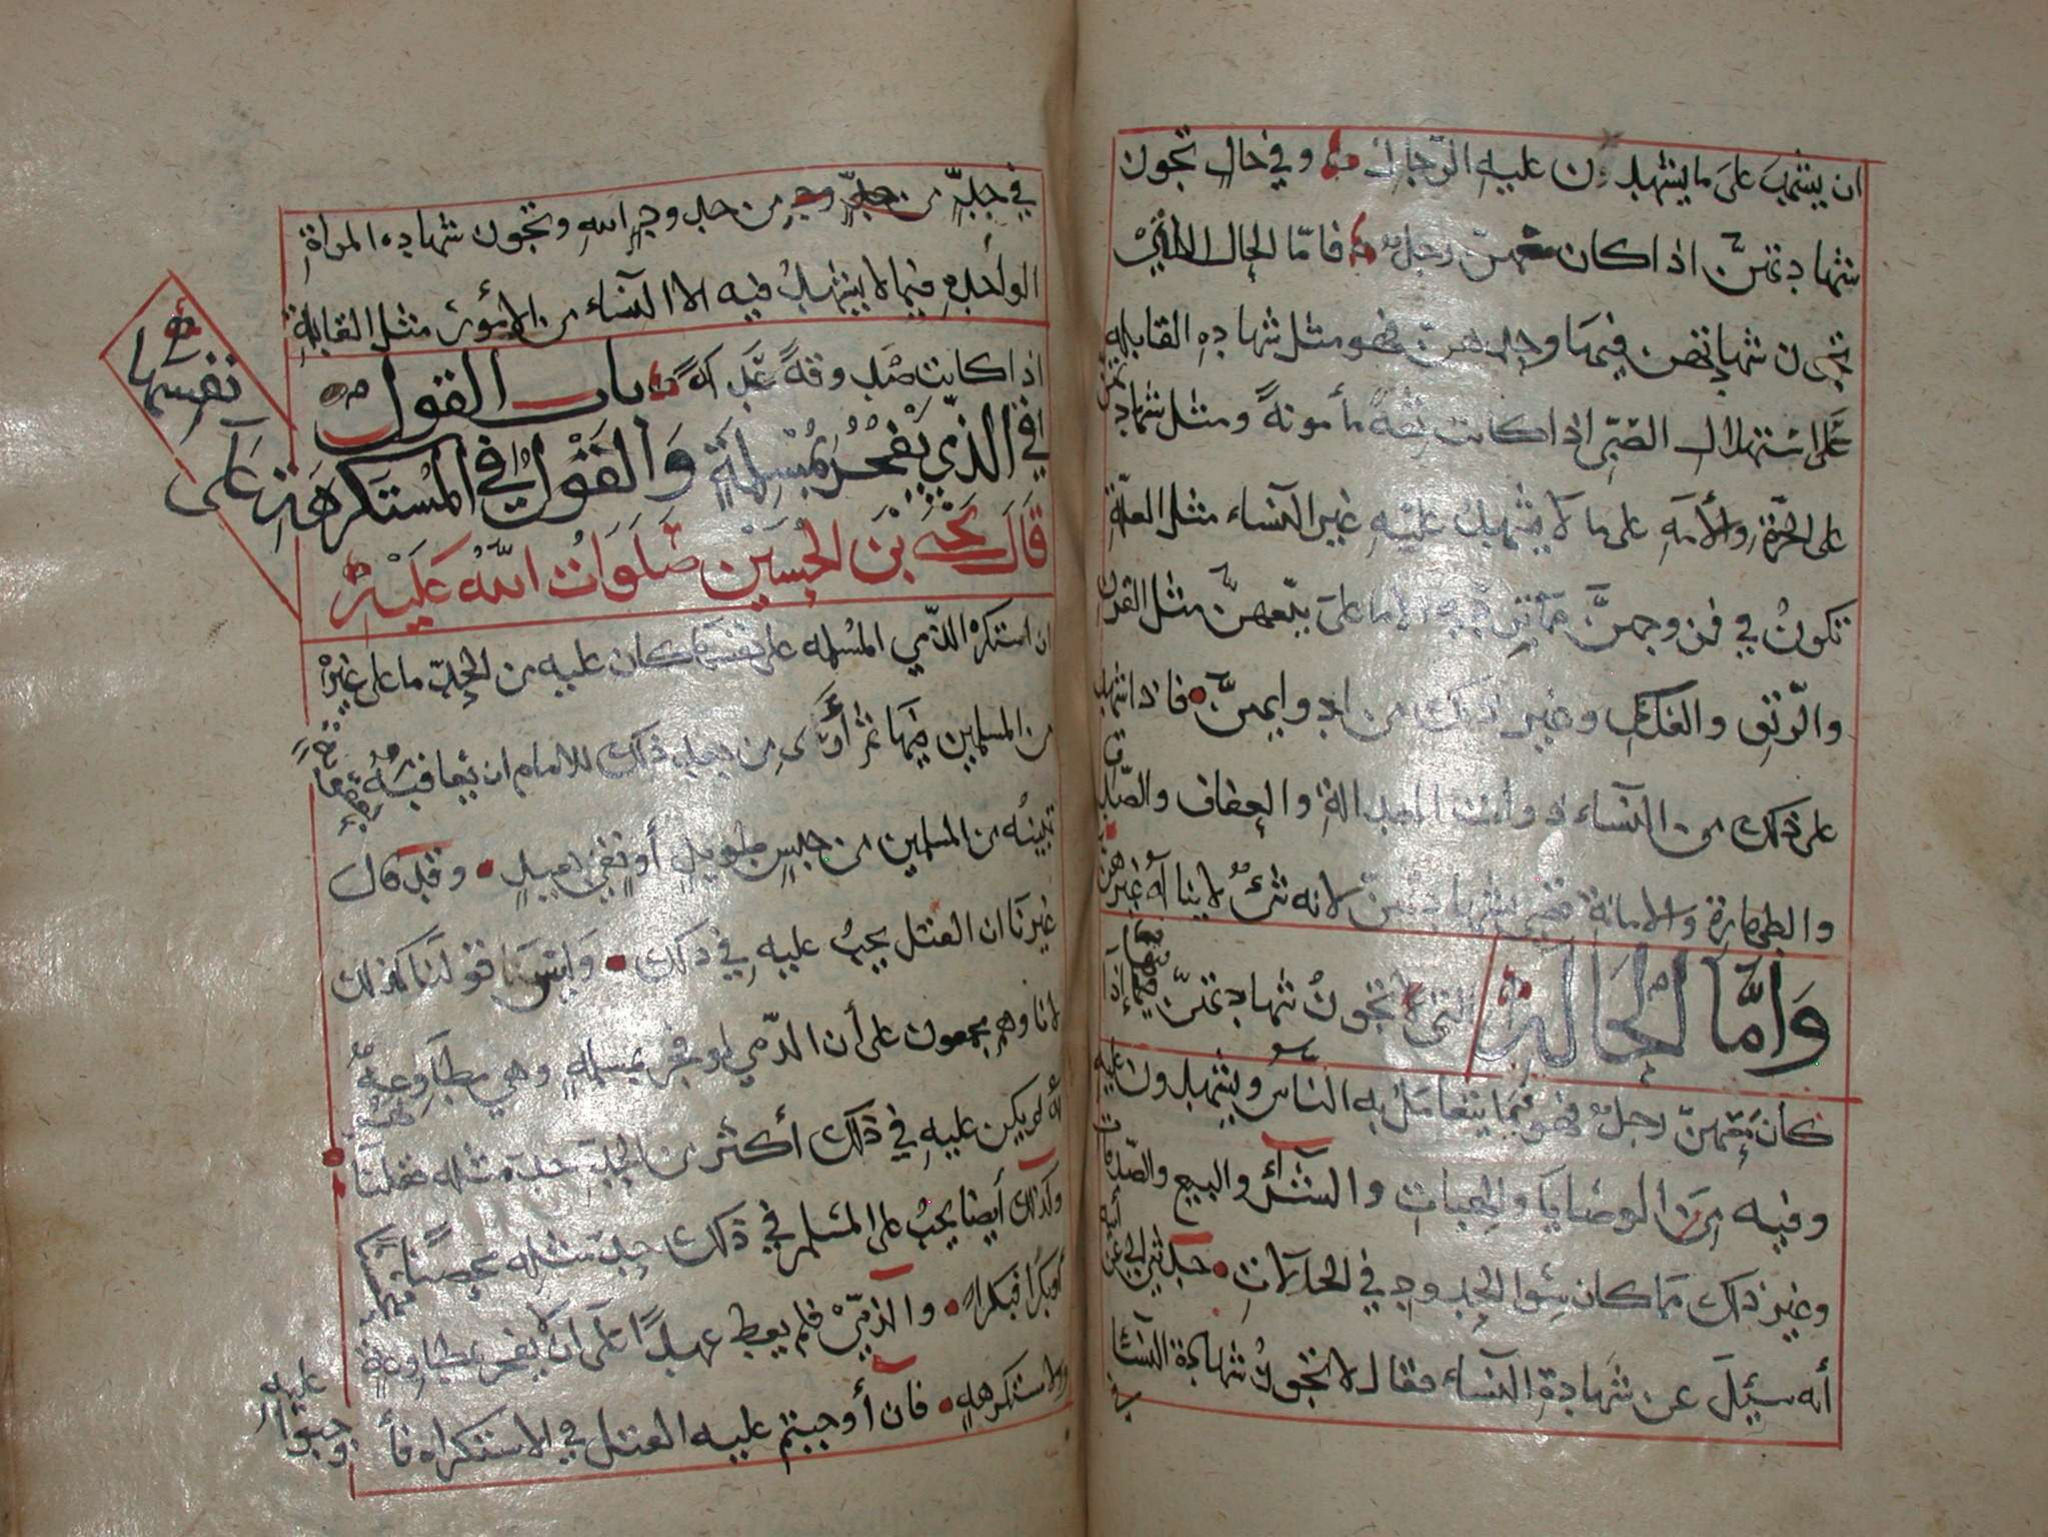 ان يشهد على ما يشهدون عليه الرجال وفي حال تجوز
شهادتهن اذا كان معهن رجل فاما الحال التي
تجوز شهادتهن فيها وحدهن فهو مثل شهادة القابله
على استهلال الصبي اذا كانت ثقة مأمونة ومثل شهادتهن
على الحرة والأمة على ما لا يشهد عليه غير النساء مثل العلة
تكون في فروجهن مما الاما على بيعهن مثل القرن
والرتق والعفل وغير ذلك من ادوايهن فاذا شهد
على ذلك من النساء ذوات العدالة والعفاف والصدق
والطهارة والامانة شهادتهن لانه شيء لا يناله غيرهن
وَامّا الحَالة التي تجوز شهادتهن فيها إذا
كان معهن رجل فهو فيما يتعامل به الناس ويشهدون عليه
وفيه من الوصايا والهبات والشراء والبيع والصدقات
وغير ذلك مما كان سوا الحدود في الحالات حدثني ابي عن أبيه
أنه سئل عن شهادة النساء فقال لا تجوز شهادة النسا
في
في حد من حدود الله وتجوز شهاده المراة
الواحده فيما لا يشهد فيه الا النساء من الأمور مثل القابلة
اذا كانت صدوقة عدلة باب القول
في الذي يفجر بمسلمة والقول في المستكرهة على
نفسها
قال يحيى بن الحسين صلوات الله عليه
ان استكره الذمي المسلمه على نفسها كان عليه من الحد ما على غيره
من المسلمين فيها ثم أرى من بعد ذلك للامام ان يعاقبه معاقبة
تبينه من المسلمين من حبس طويل أو نفي بعيد وقد قال
غيرنا ان القتل يجب عليه في ذلك وليس قولنا كذلك
لانا وهم مجمعون على أن الذمي لو فجر بمسلمه وهي مطاوعة له
أنه لم يكن عليه في ذلك أكثر من الحد حد مثله فقلنا
وكذلك أيضا يجب على المسلم في ذلك حد مثله محصنا
أو بكرا فبكرا والذمي فلم يعط عهدا على أن يفجر بمطاوعة
ولا مستكرهه فان أوجبتم عليه القتل في الاستكراه فأ
وجبوا عليه